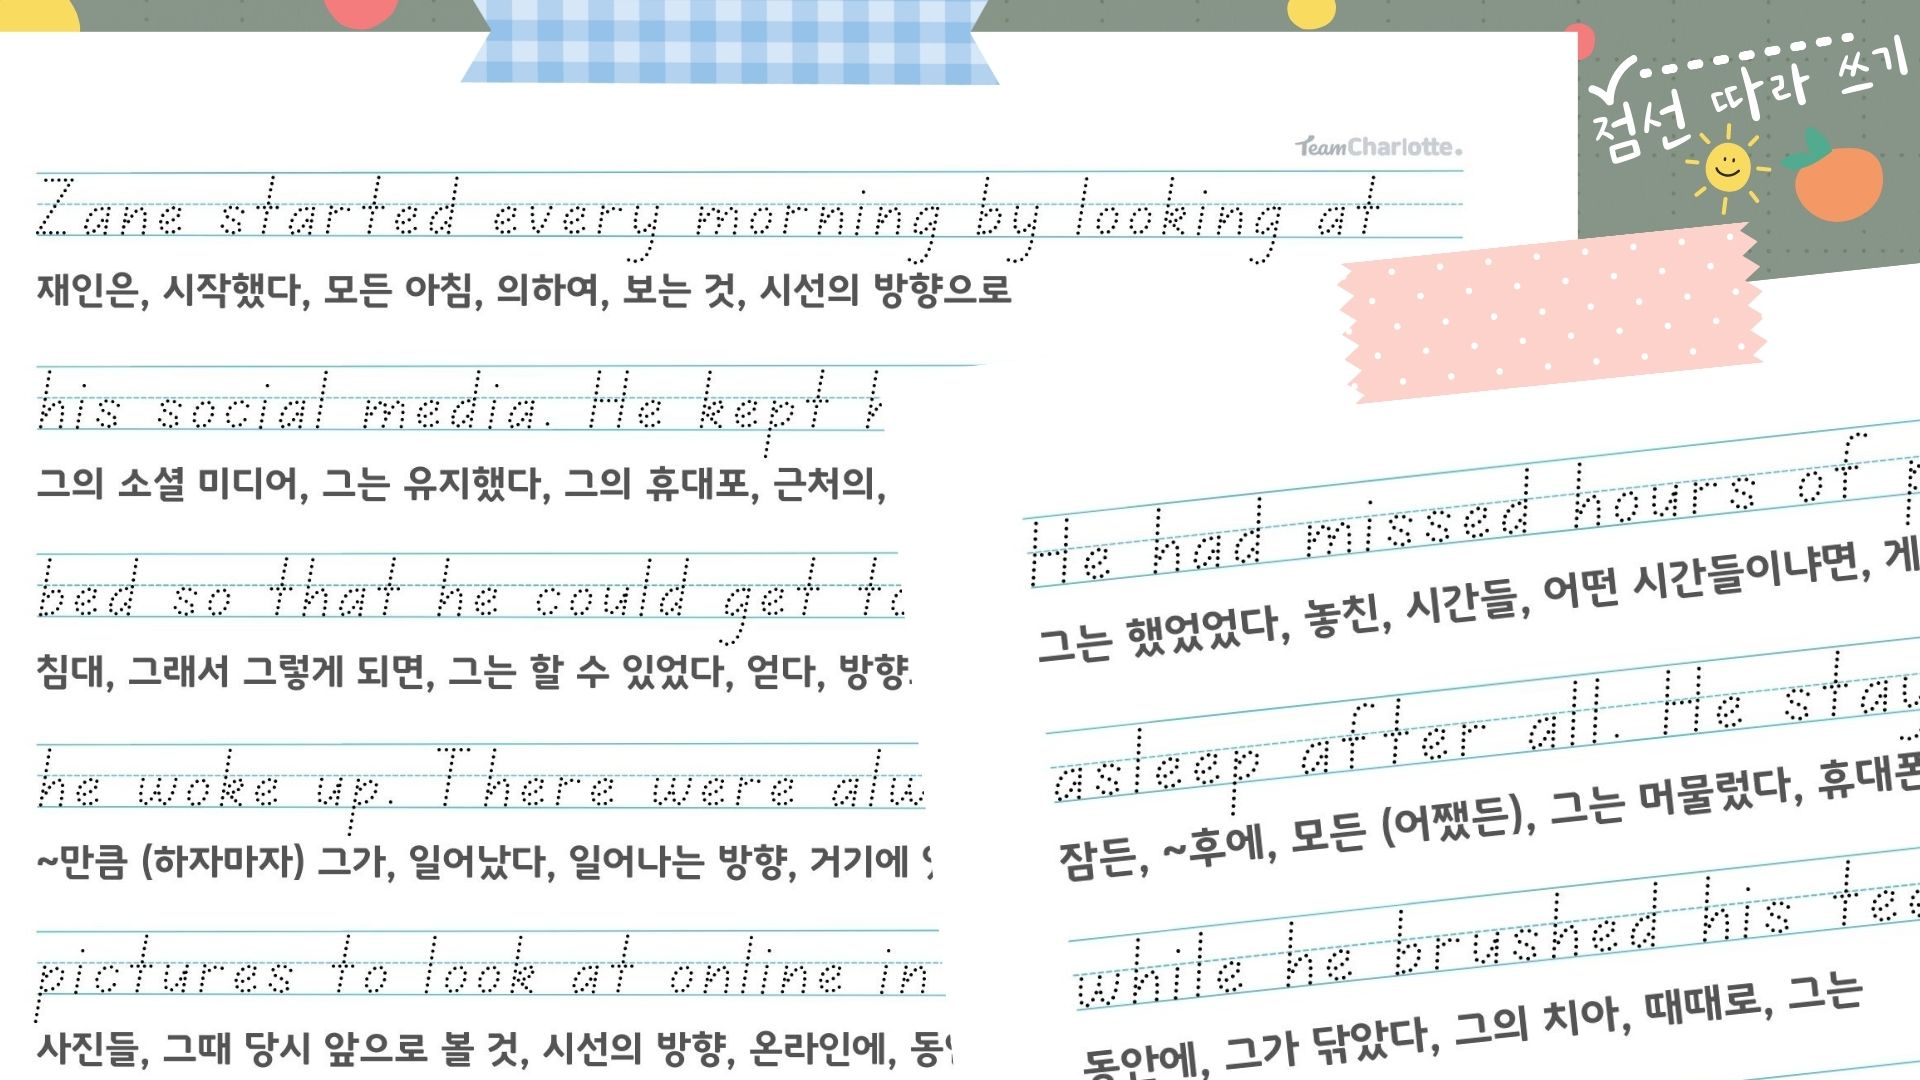 점선 따라 쓰기
TeamCharlotte.
Zane started every morning by looking at
재인은, 시작했다, 모든 아침, 의하여, 보는 것, 시선의 방향으로
his social media. He kept
그의 소셜 미디어, 그는 유지했다, 그의 휴대포, 근처의,
bed so that he could get
침대, 그래서 그렇게 되면, 그는 할 수 있었다, 얻다, 방향
he woke up. There were
~만큼 (하자마자) 그가, 일어났다, 일어나는 방향, 거기에
pictures to look at online in
사진들, 그때 당시 앞으로 볼 것, 시선의 방향, 온라인에,
He had missed hours of
그는 했었었다, 놓친, 시간들, 어떤 시간들이냐면,
asleep after all. He
잠든, ~후에, 모든 (어쨌든), 그는 머물렀다,
while he brushed his
동안에, 그가 닦았다, 그의 치아, 때때로, 그는